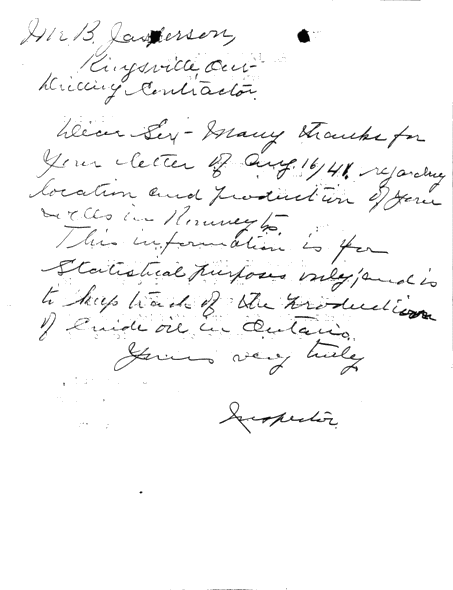 Mr B. Jasperson,
Kingsville, Ont
Drilling Contractor.
Dear Sir - Many thanks for
your letter of Aug 16/41 regarding
location and production of your
wells in Romney tp
This information is for
statistical purposes only, and is
to keep track of the production
of crude oil in Ontario.
Yours very truly
Inspector.